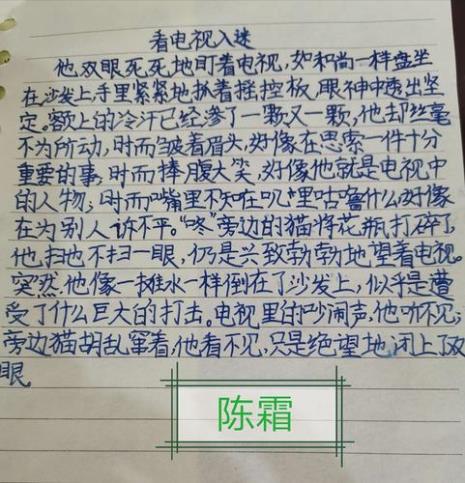 看电视入迷
他双眼死死地盯着电视,如和尚一样盘坐
在沙发上手里紧紧地扒着摇控板,眼神中透出坚
定。额上的冷汗已经渗了一颗又一颗,他却丝毫
不为所动,时而皱着眉头,好像在思索一件十分
重要的事,时而捧腹大笑,好像他就是电视中
的人物;时而嘴里不知在叽里咕噜什么好像
在为别人诉不平。“咚”旁边的猫将花瓶打碎了,
他扫也不扫一眼,仍是兴致勃勃地望着电视。
突然他像一摊水一样倒在了沙发上,似乎是遭
受了什么巨大的打击。电视里的吵闹声,他听不见;
旁边猫胡乱窜着,他看不见,只是绝望地,闭上了双
眼。
陈霜